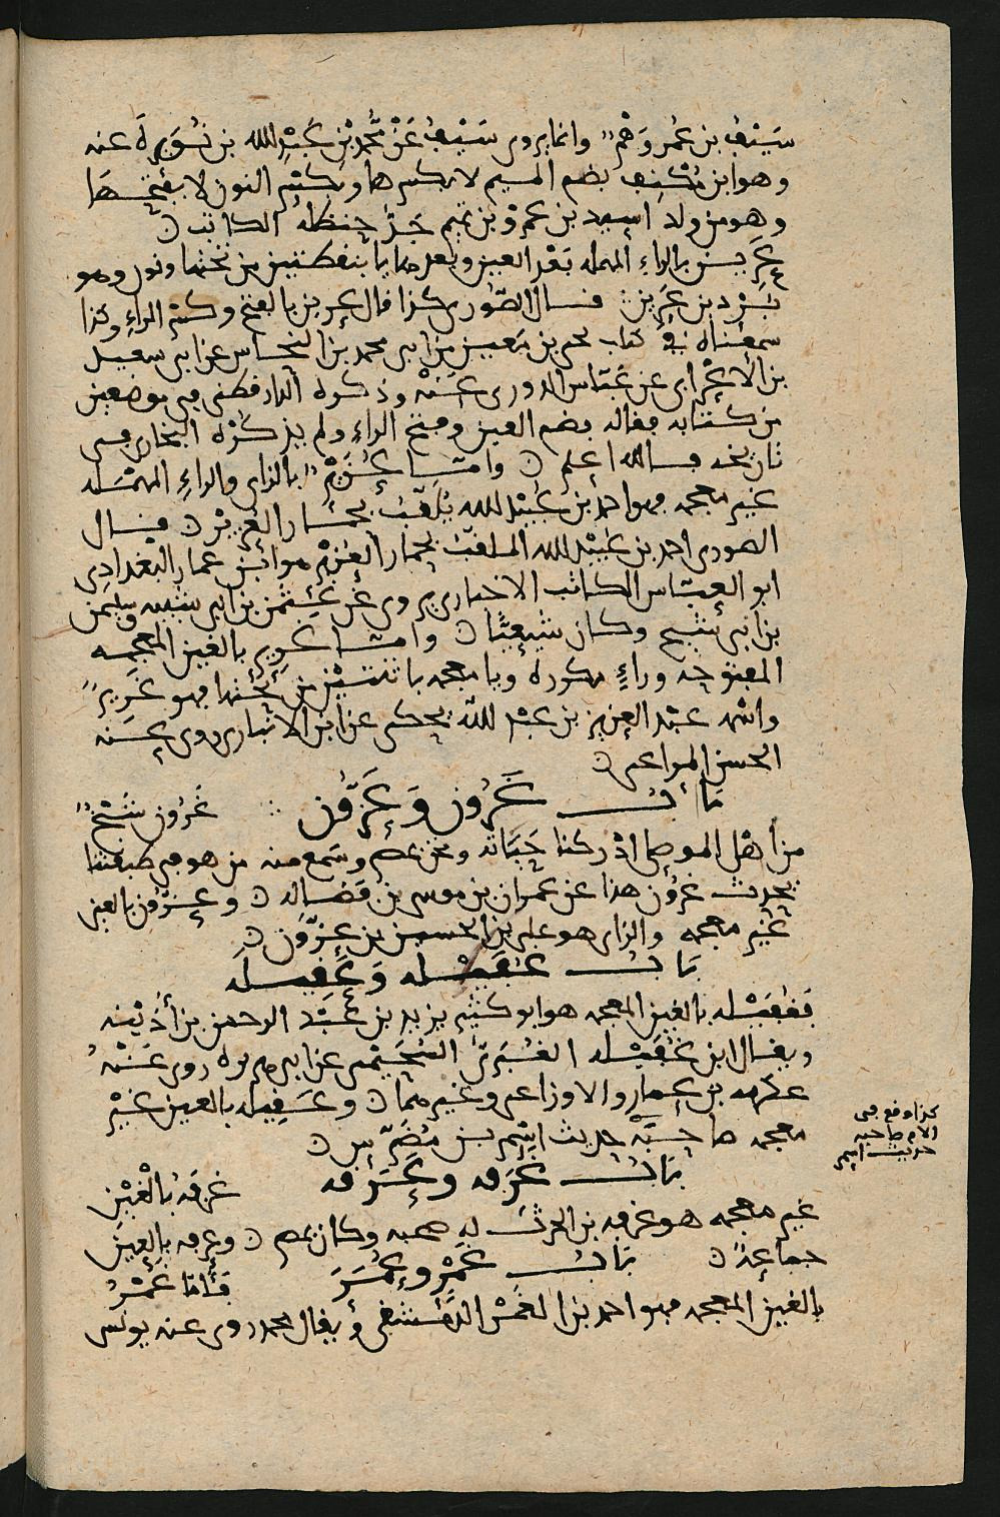 سَيْفُ بن عُمر وَهْم وانما يروى سَيْفُ عَنْ مُحمدِ بْنِ عَبْدِ الله بن نُوَيرة عنه
وهو ابن مُكْنِف بضم الميم لا بكسرها وبكسْر النون لا بفتحها
وهو من ولد اسيد بن عمرو بن تميم جَدّ حنظلة الكاتب
عَرِين بالراء المهملة بَعْد العين وبعدها يا بنقطتين من تحتها ونون وهو
بن عرين قال الصُّورى كذا قال عَرِين بالفتح وكسْر الراءِ وكذا
سمعْناه فى كتاب يحيى بن مَعِين من ابى محمد بن النحاس عن ابى سعيد
بن الاعْرابى عن عَبّاس الدورى عَنْهُ وذكره الدارقطنى فى موضعين
من كتابه فقاله بضم العين وفتح الراء ولم يذكرْه البخارى فى
تاريخه فالله اعلم وامّا عُزَيْر بالزاى والراءِ المهمَلة
غير معجمه فهو احمد بن عُبَيْد الله يُلقّب بحمار العُزَيْر قال
الصورى احمد بن عُبَيْد الله الملقّب بحمار العُزَيْر هو ابْن عمار البَغْدادِى
ابو العبّاس الكاتب الاخبارى يروى عَنْ عُثمن بن ابى شيبه وسليمن
بن ابى شيخ وكان شيعيًّا وامّا غَرِير بالغين المعجمه
المفتوحه وراءٍ مكررة ويا معجمه باثنتيْن من تحْتها فهو غَرِيرٌ
واسْمه عبْد العزيز بن عبْد الله يحكى عن ابن الانبارى روى عَنه
الحسن المراعى
بَابُ غَرُون وَعَزُّون غَرُون شَيْخٌ
من أهْل الموصل اذْركنا حَيَاته وبمصر وسَمع منه من هو فى طبقتنا
يحدث غرُون هذا عن عمران بن موسى بن فضاله وعزُّون بالعين
غَيْر معجمه والزاى هو على بن الحسين بن عزُّون
بَابُ غُفَيْله وَعَقِيله
فغُفَيْله بالغين المعجمه هو ابو كثِير يزيد بن عَبْد الرحمن بن أُذَيْنه
ويقال ابن غُفَيْله الغُبَرِىّ السُّحَيْمى عن ابى هريره روى عَنْهُ
عكرمه بن عمار والاوزاعى وغيرهما وعَقِيله بالعين غَيْر
معجمه صاحبَة حديث اسْمر بن مُضَرِّس
كذا وقع فى
الام صاحبه
حديث اسمر
بَابُ غَرَفه وعَرَفه غرفهُ بالْغَيْن
غير معجمه هو غرفه بن الحرث له صحبه وكان بمصر وعرفه بالعيْن
جماعةٌ بَابُ غَمْر وعُمَرَ فَأمّا غَمْرُ
بالغين المعجمه فهو احمد بن الغمْر الدمشقى ويقال محمد روى عنه يونس